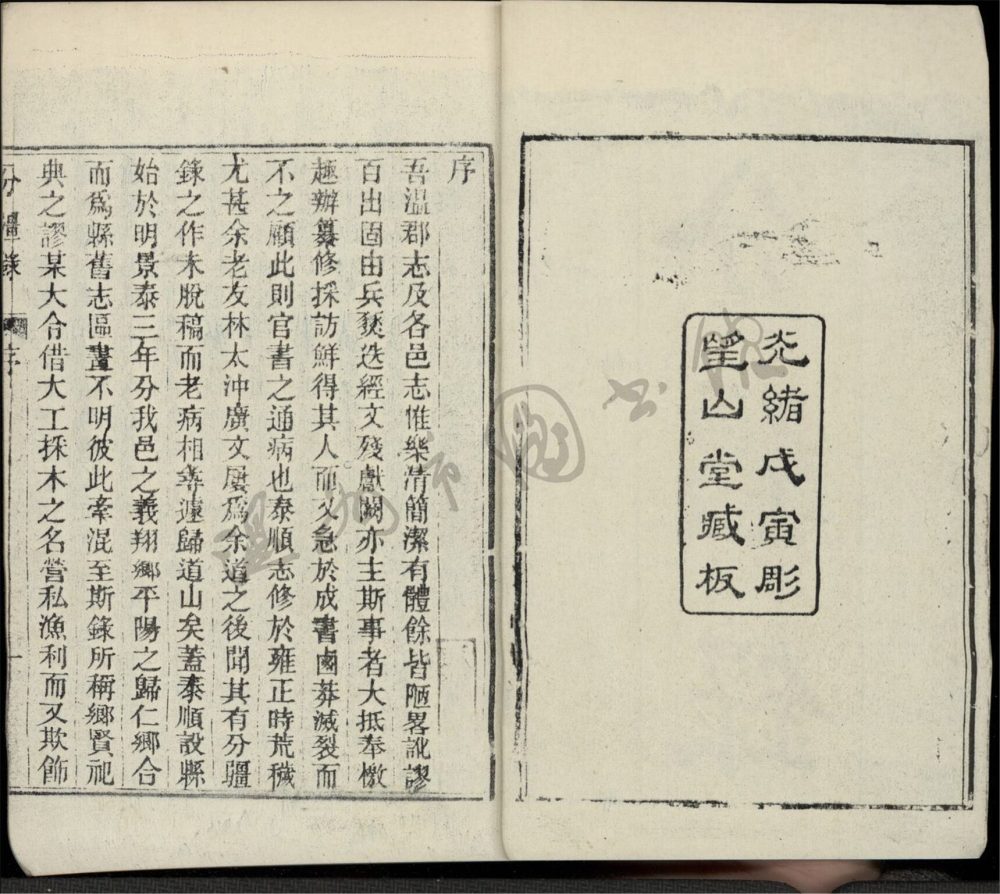 光緒戊寅彫
望山堂藏板
序
吾溫郡志及各邑志惟樂清簡潔有體餘皆陋畧訛謬
百出固由兵燹迭經文殘獻闕亦主斯事者大抵奉檄
趣辦纂修採訪鮮得其人而又急於成書鹵莽滅裂而
不之顧此則官書之通病也泰順志修於雍正時荒穢
尤甚余老友林太沖廣文屢爲余道之後聞其有分疆
錄之作未脫稿而老病相尋遽歸道山矣蓋泰順設縣
始於明景泰三年分我邑之義翔鄉平陽之歸仁鄉合
而爲縣舊志區畫不明彼此牽混至斯錄所稱鄉賢祀
典之謬某大合借大工採木之名營私漁利而又欺飾
分疆錄 序 一